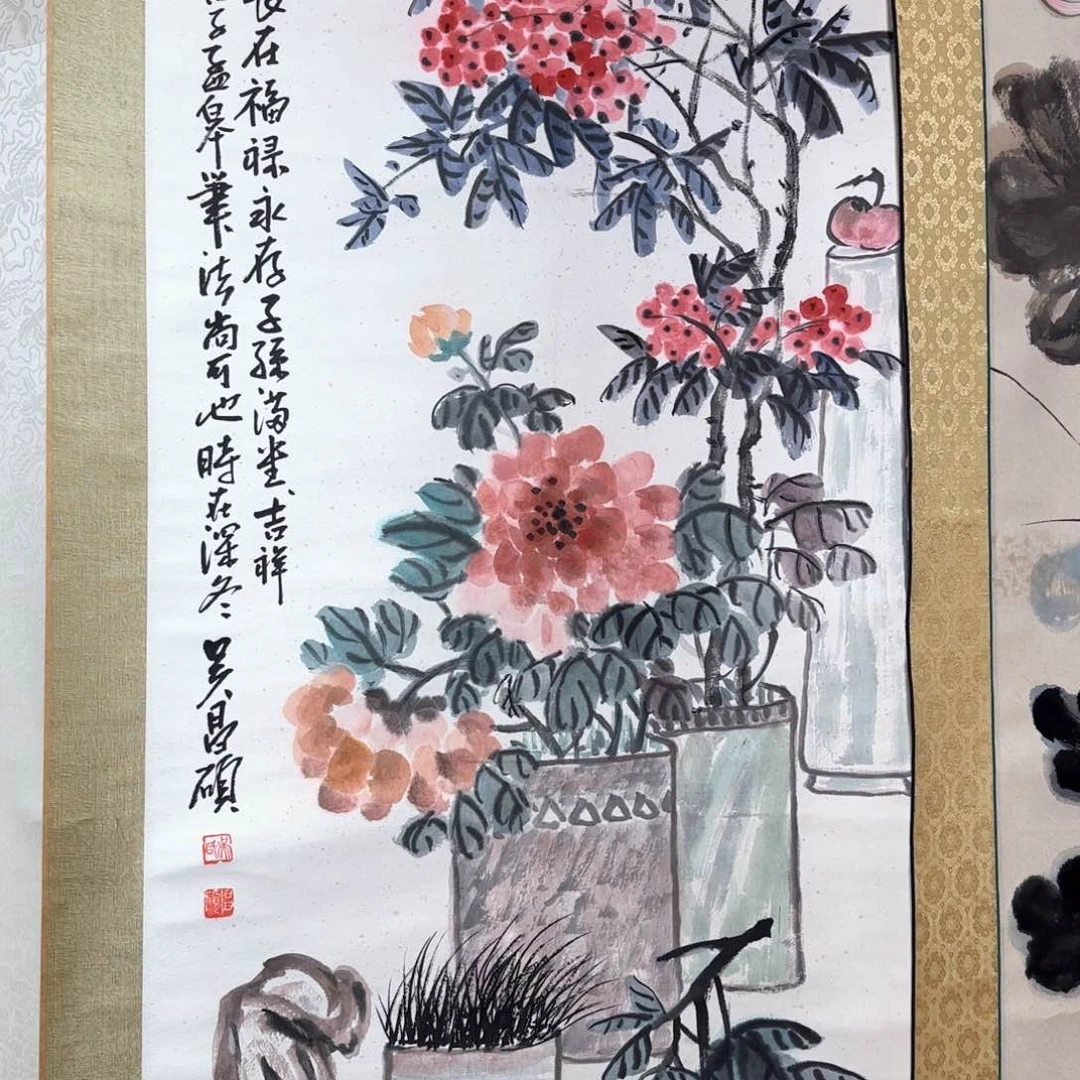 在福禄永存子孫滿堂吉祥
子孟皋筆法尚可也時在深冬 吳昌碩